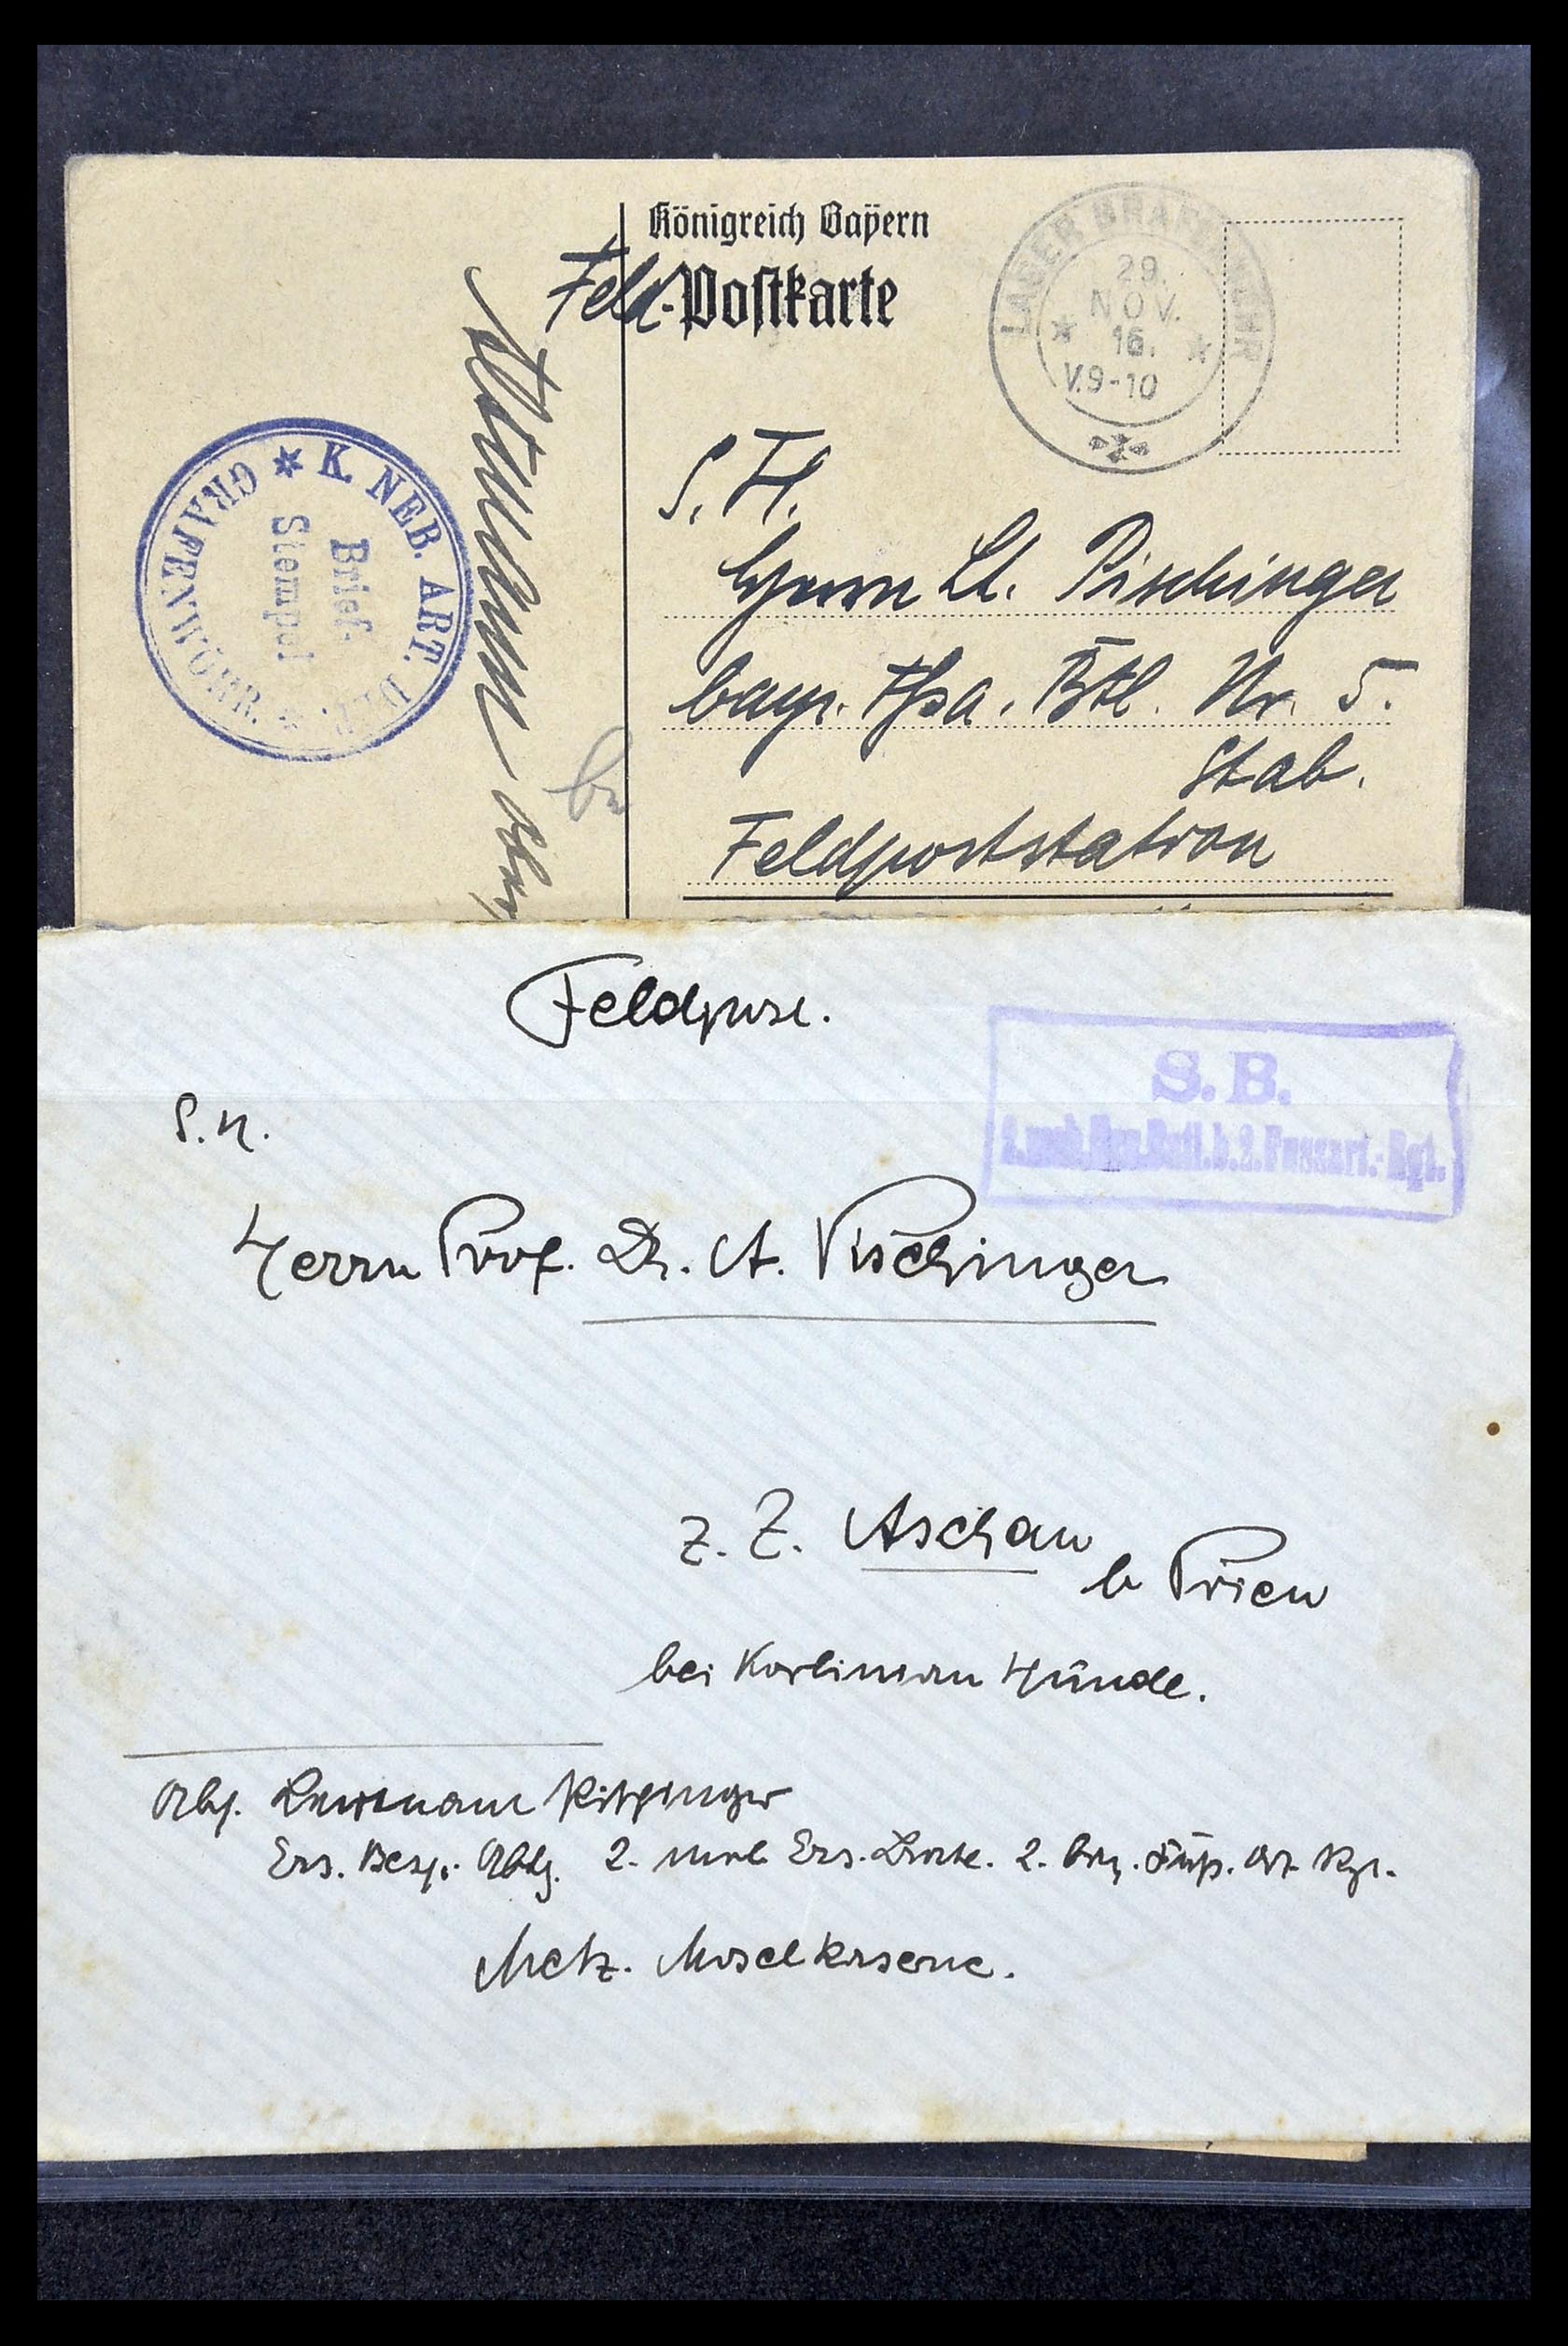 Königreich Bayern
Feld-Postkarte
LAGER GRAFENWÖHR
29.
NOV.
16.
V.9-10
K. NEB. ART. DEP.
GRAFENWÖHR.
Brief-
Stempel
S. H.
Herrn Lt. Pischinger
bayr. Fssa. Btl. Nr. 5.
Stab.
Feldpoststation
Feldpost.
S. B.
2. mob. Ers. Batl. b. 2. Fussart.-Rgt.
S. H.
Herrn Prof. Dr. A. Pischinger
z. Z. Aschau
b Prien
bei
Abs. Leutnant
Ers. Besp. Abtlg. 2. mob Ers. 2. bay. Fußart. Rgt.
Metz. Moselkaserne.